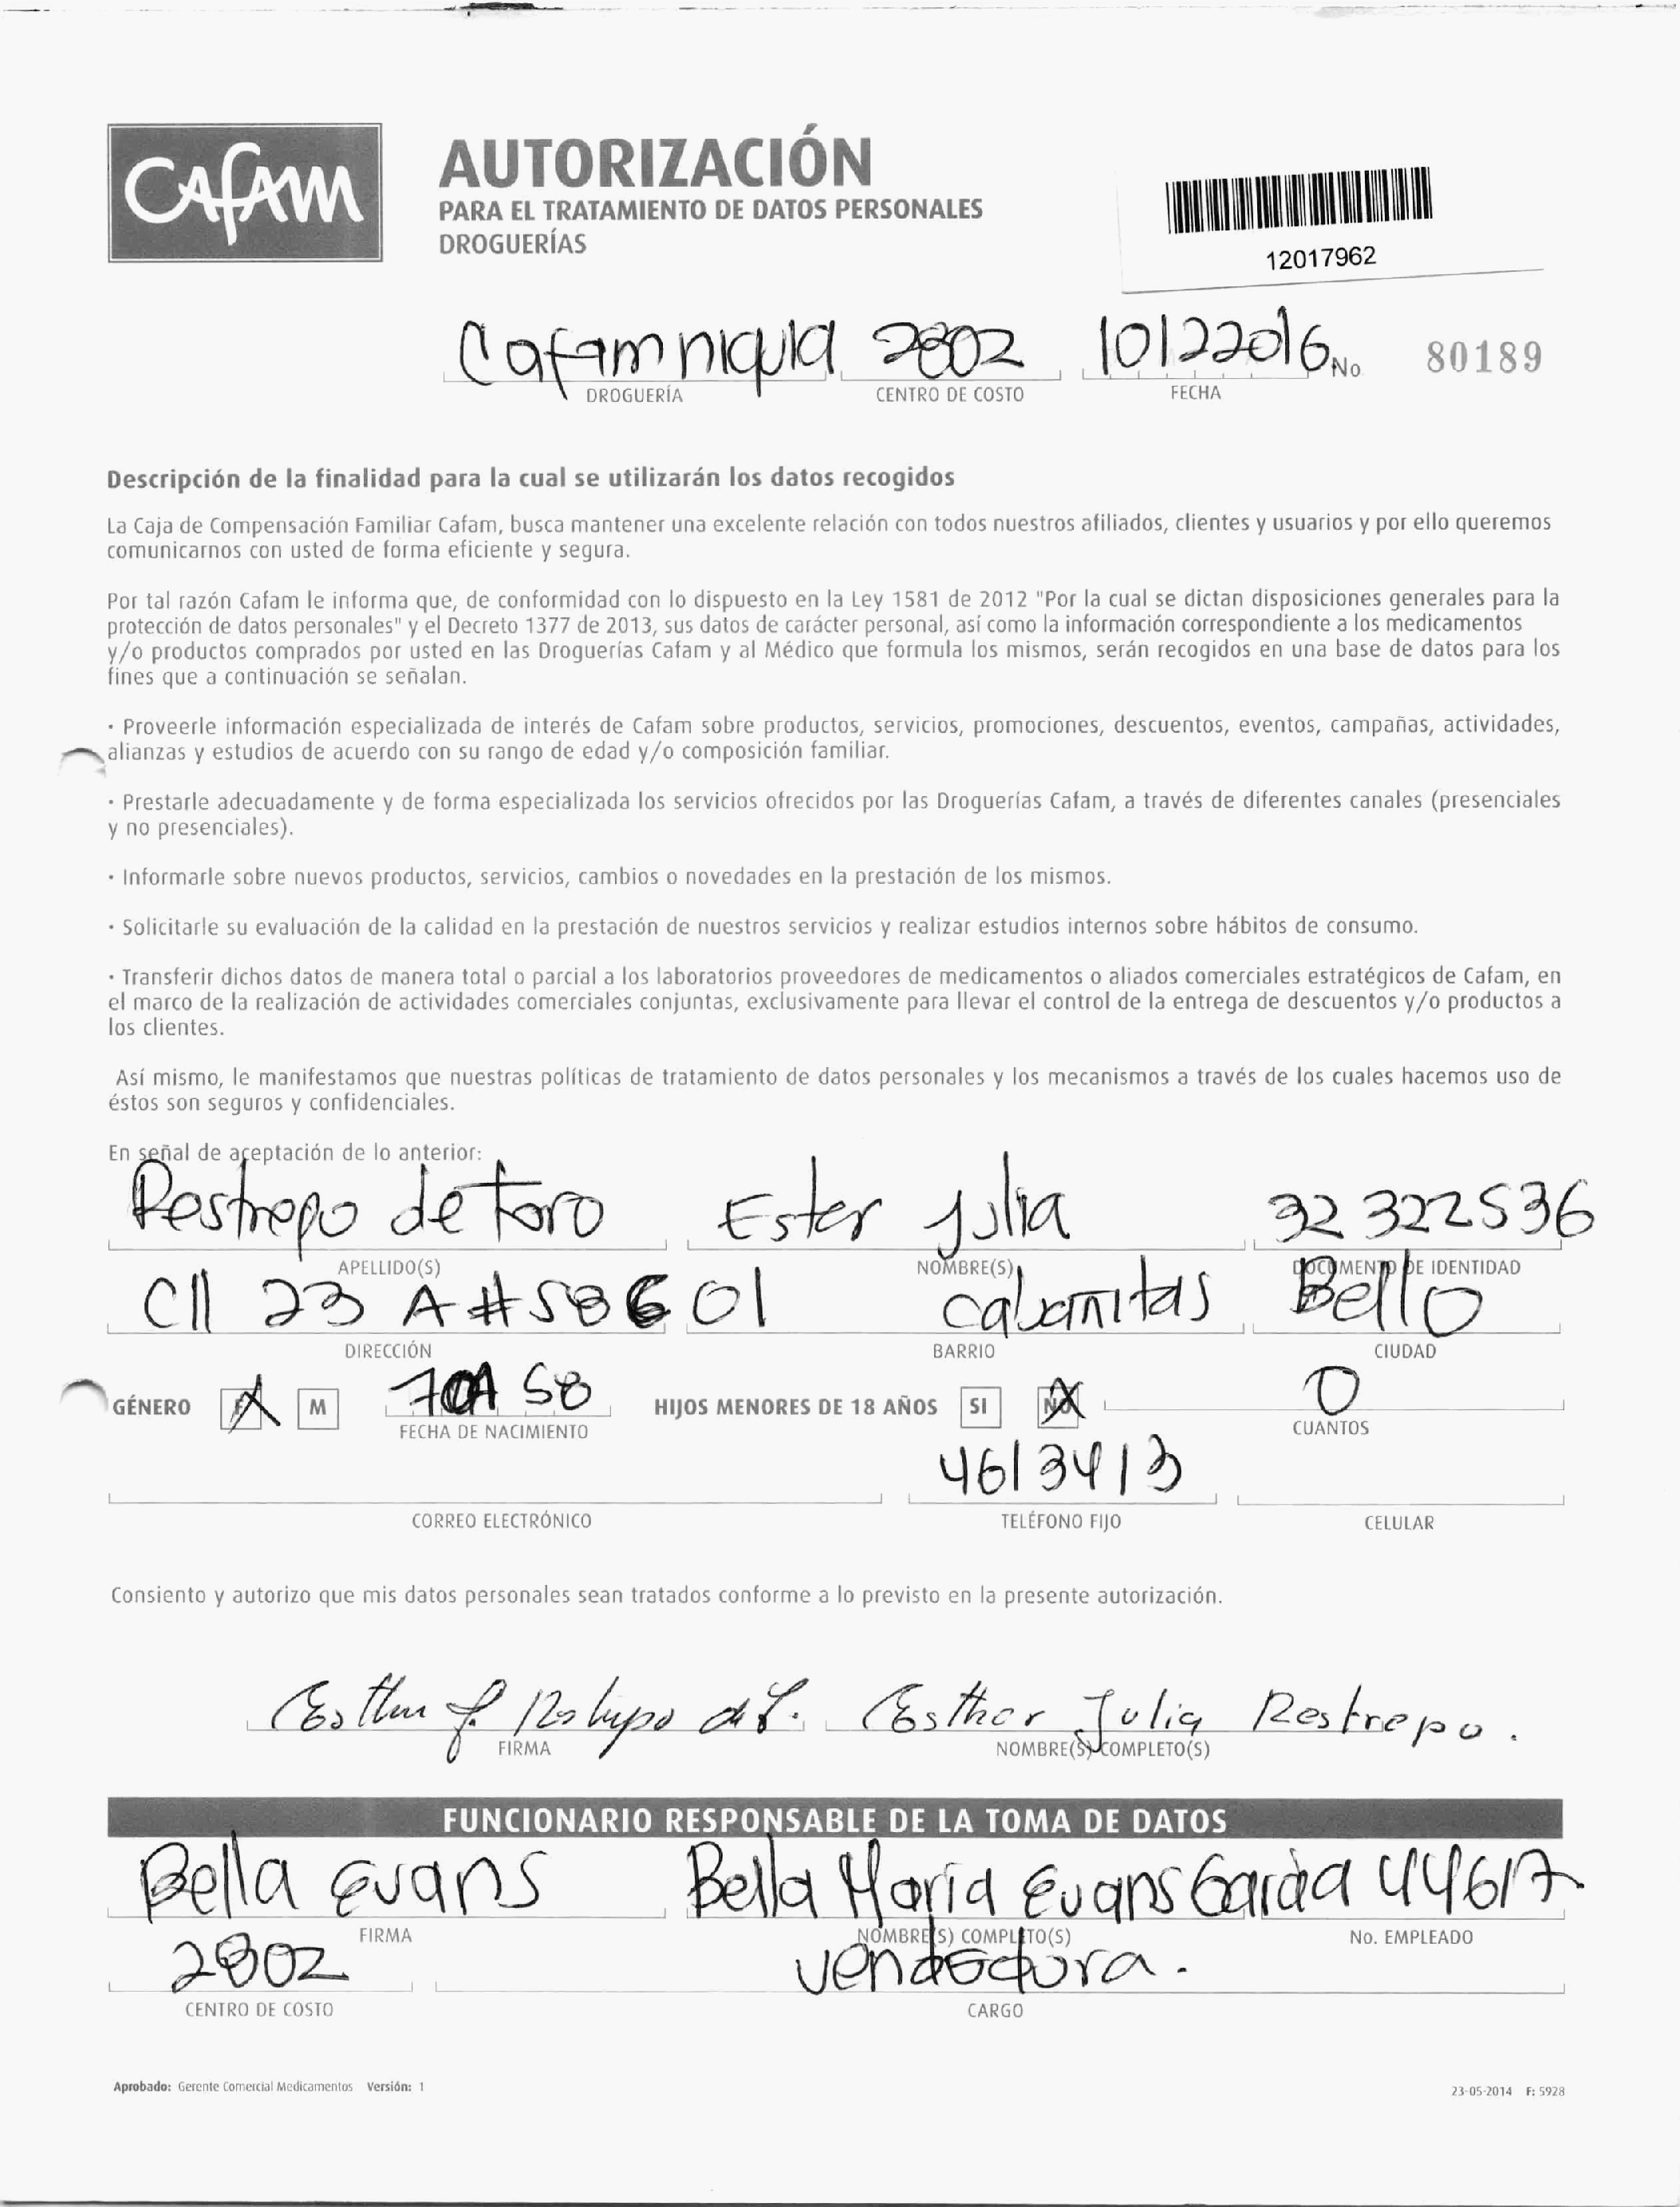 CAFAM
AUTORIZACIÓN
PARA EL TRATAMIENTO DE DATOS PERSONALES
DROGUERÍAS
12017962
Cafam niquia 2802 10122016 No 80189
DROGUERÍA CENTRO DE COSTO FECHA
Descripción de la finalidad para la cual se utilizarán los datos recogidos
La Caja de Compensación Familiar Cafam, busca mantener una excelente relación con todos nuestros afiliados, clientes y usuarios y por ello queremos
comunicarnos con usted de forma eficiente y segura.
Por tal razón Cafam le informa que, de conformidad con lo dispuesto en la Ley 1581 de 2012 "Por la cual se dictan disposiciones generales para la
protección de datos personales" y el Decreto 1377 de 2013, sus datos de carácter personal, así como la información correspondiente a los medicamentos
y/o productos comprados por usted en las Droguerías Cafam y al Médico que formula los mismos, serán recogidos en una base de datos para los
fines que a continuación se señalan.
· Proveerle información especializada de interés de Cafam sobre productos, servicios, promociones, descuentos, eventos, campañas, actividades,
alianzas y estudios de acuerdo con su rango de edad y/o composición familiar.
· Prestarle adecuadamente y de forma especializada los servicios ofrecidos por las Droguerías Cafam, a través de diferentes canales (presenciales
y no presenciales).
· Informarle sobre nuevos productos, servicios, cambios o novedades en la prestación de los mismos.
· Solicitarle su evaluación de la calidad en la prestación de nuestros servicios y realizar estudios internos sobre hábitos de consumo.
· Transferir dichos datos de manera total o parcial a los laboratorios proveedores de medicamentos o aliados comerciales estratégicos de Cafam, en
el marco de la realización de actividades comerciales conjuntas, exclusivamente para llevar el control de la entrega de descuentos y/o productos a
los clientes.
Así mismo, le manifestamos que nuestras políticas de tratamiento de datos personales y los mecanismos a través de los cuales hacemos uso de
éstos son seguros y confidenciales.
En señal de aceptación de lo anterior:
Restrepo de toro Ester Julia 32 322536
APELLIDO(S) NOMBRE(S) DOCUMENTO DE IDENTIDAD
Cll 23 A # 01 Bello
DIRECCIÓN BARRIO CIUDAD
GÉNERO F M 58 HIJOS MENORES DE 18 AÑOS SI NO 0
FECHA DE NACIMIENTO CUANTOS
4613413
CORREO ELECTRÓNICO TELÉFONO FIJO CELULAR
Consiento y autorizo que mis datos personales sean tratados conforme a lo previsto en la presente autorización.
Esther J. Restrepo de T. Esther Julia Restrepo.
FIRMA NOMBRE(S) COMPLETO(S)
FUNCIONARIO RESPONSABLE DE LA TOMA DE DATOS
Bella Evans Bella Maria Evans Garcia 44617
FIRMA NOMBRE(S) COMPLETO(S) No. EMPLEADO
2802 vendedora.
CENTRO DE COSTO CARGO
Aprobado: Gerente Comercial Medicamentos Versión: 1 23-05-2014 F: 5928